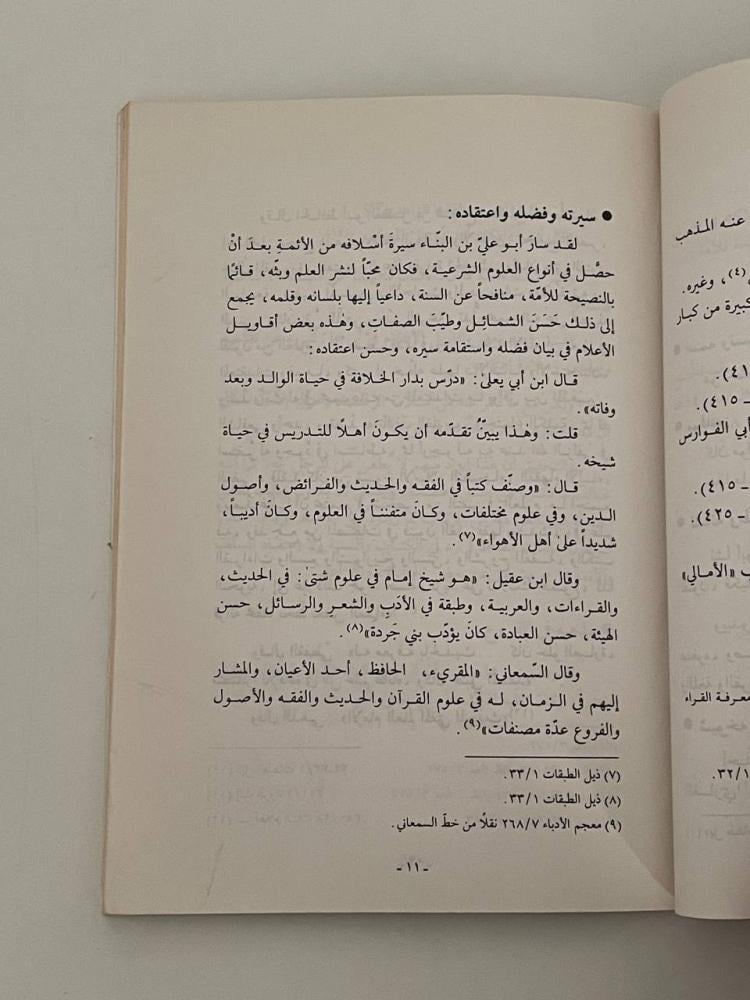 عنه المذهب
(٤)، وغيره.
كبيرة من كبار
٤١).
- ٤١٥).
أبي الفوارس
- ٤١٥).
- ٤٢٥).
ب «الأمالي»
معرفة القراء
٣٢/١.
● سيرته وفضله واعتقاده:
لقد سارَ أبو عليّ بن البنّاء سيرةَ أسْلافه من الأئمةِ بعدَ أنْ
حصَّل في أنواع العلوم الشرعية، فكان محبّاً لنشر العلم وبثّه، قائمًا
بالنصيحة للأمّة، منافحاً عن السنة، داعياً إليها بلسانه وقلمه، يجمع
إلى ذلك حَسَنَ الشمائِل وطيّبَ الصفاتِ، وهٰذه بعض أقاويل
الأعلام في بيان فضله واستقامة سيره، وحسن اعتقاده:
قال ابن أبي يعلىٰ: «درّس بدار الخلافة في حياة الوالد وبعد
وفاته».
قلت: وهٰذا يبيّنُ تقدّمه أن يكونَ أهلًا للتدريس في حياة
شيخه.
قال: «وصنّف كتباً في الفقه والحديث والفرائض، وأصول
الدين، وفي علوم مختلفات، وكانَ متفنناً في العلوم، وكانَ أديباً،
شديداً علىٰ أهل الأهواء»(٧).
وقال ابن عقيل: «هو شيخ إمام في علوم شتىٰ: في الحديث،
والقراءات، والعربية، وطبقة في الأدَبِ والشعرِ والرسائل، حسن
الهيئة، حسن العبادة، كانَ يؤدّب بني جَردة»(٨).
وقال السّمعاني: «المقريء، الحافظ، أحد الأعيان، والمشار
إليهم في الزمان، له في علوم القرآن والحديث والفقه والأصول
والفروع عدّة مصنفات»(٩).
(٧) ذيل الطبقات ٣٣/١.
(٨) ذيل الطبقات ٣٣/١.
(٩) معجم الأدباء ٢٦٨/٧ نقلًا من خطّ السمعاني.
- ١١ -